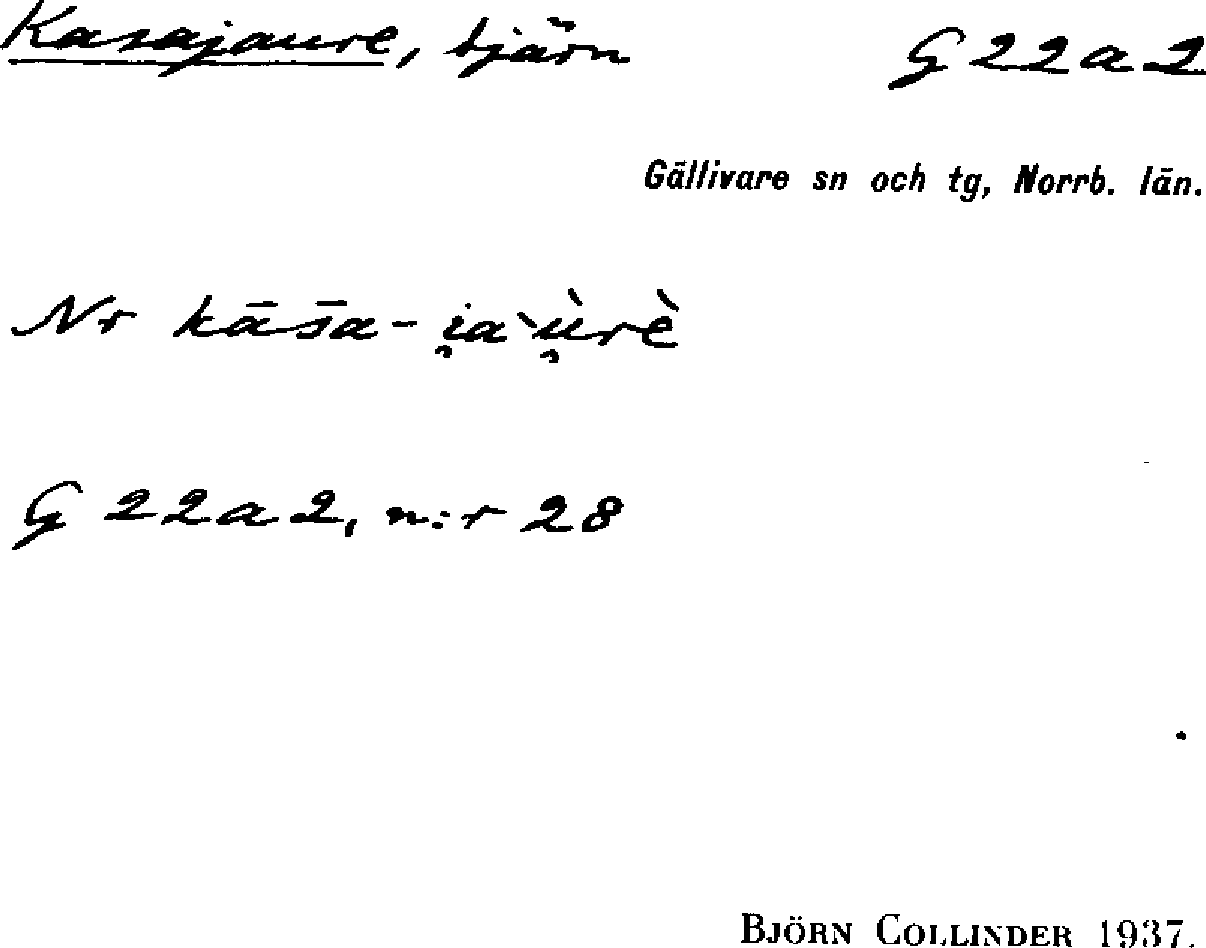 Kasajaure, tjärn G22a2
Gällivare sn och tg, Norrb. län.
Nr kās̄a-i̯a`ù̯rè
G 22a2, n:r 28
BJÖRN COLLINDER 1937.